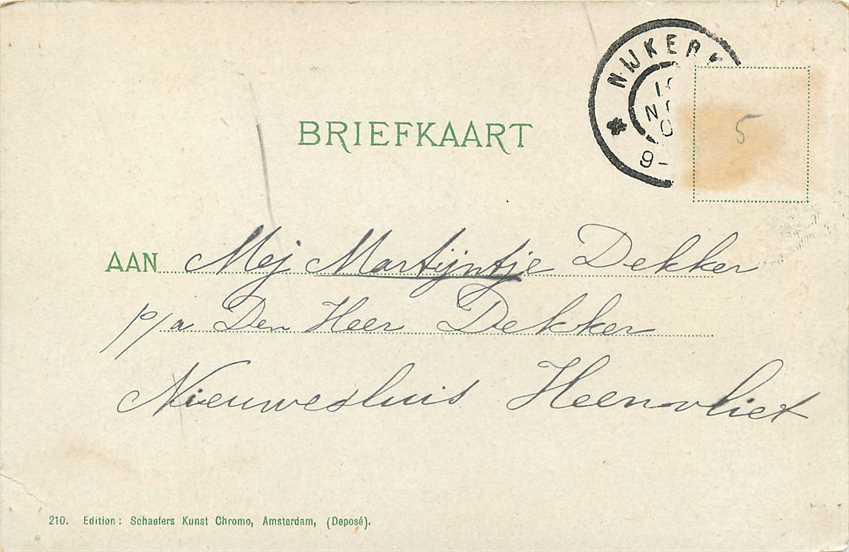 NIJKERK
9-
5
BRIEFKAART
AAN Mej Martijntje Dekker
p/a Den Heer Dekker
Nieuwesluis Heenvliet
210. Edition: Schaefers Kunst Chromo, Amsterdam, (Deposé).